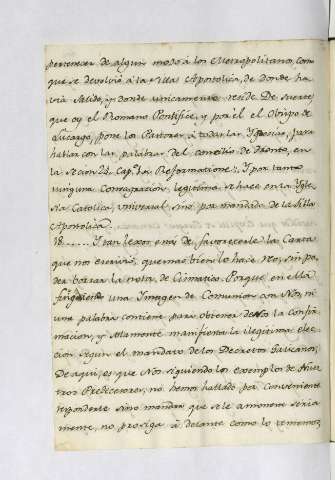 pertenecer de algun modo á los Metropolitanos, como
que se devolvió á la Silla Apostolica, de donde ha
via salido, y donde unicamente reside. De suerte,
que oy el Romano Pontifice, y por él el Obispo de
pone los Pastores á todas las Yglesias, para
hablar con las palabras del concilio de Trento, en
la Secion 24. Cap. 1. Reformatione; Y por tanto
ninguna Consagracion legitima se hace en la Ygle
sia Catolica universal sino por mandado de la Silla
Apostolica
18 Y tan lexos está de favorecerle la Carta
que nos escrivió, que mas bien lo hace reo, sin po
der borrar la nota de Cismatico. Porque en ella
fingiendo una Imagen de Comunion con Nos, ni
una palabra contiene para obtener de Nos la confir
macion, y solamente manifiesta la ilegitima elec
cion segun el mandato de los Decretos Galicanos.
De aqui, es que Nos siguiendo los exemplos de Nues
tros Predecesores, no hemos hallado por conveniente
responderle sino mandar que se le amoneste seria
mente, no prosiga á delante como lo tenemos